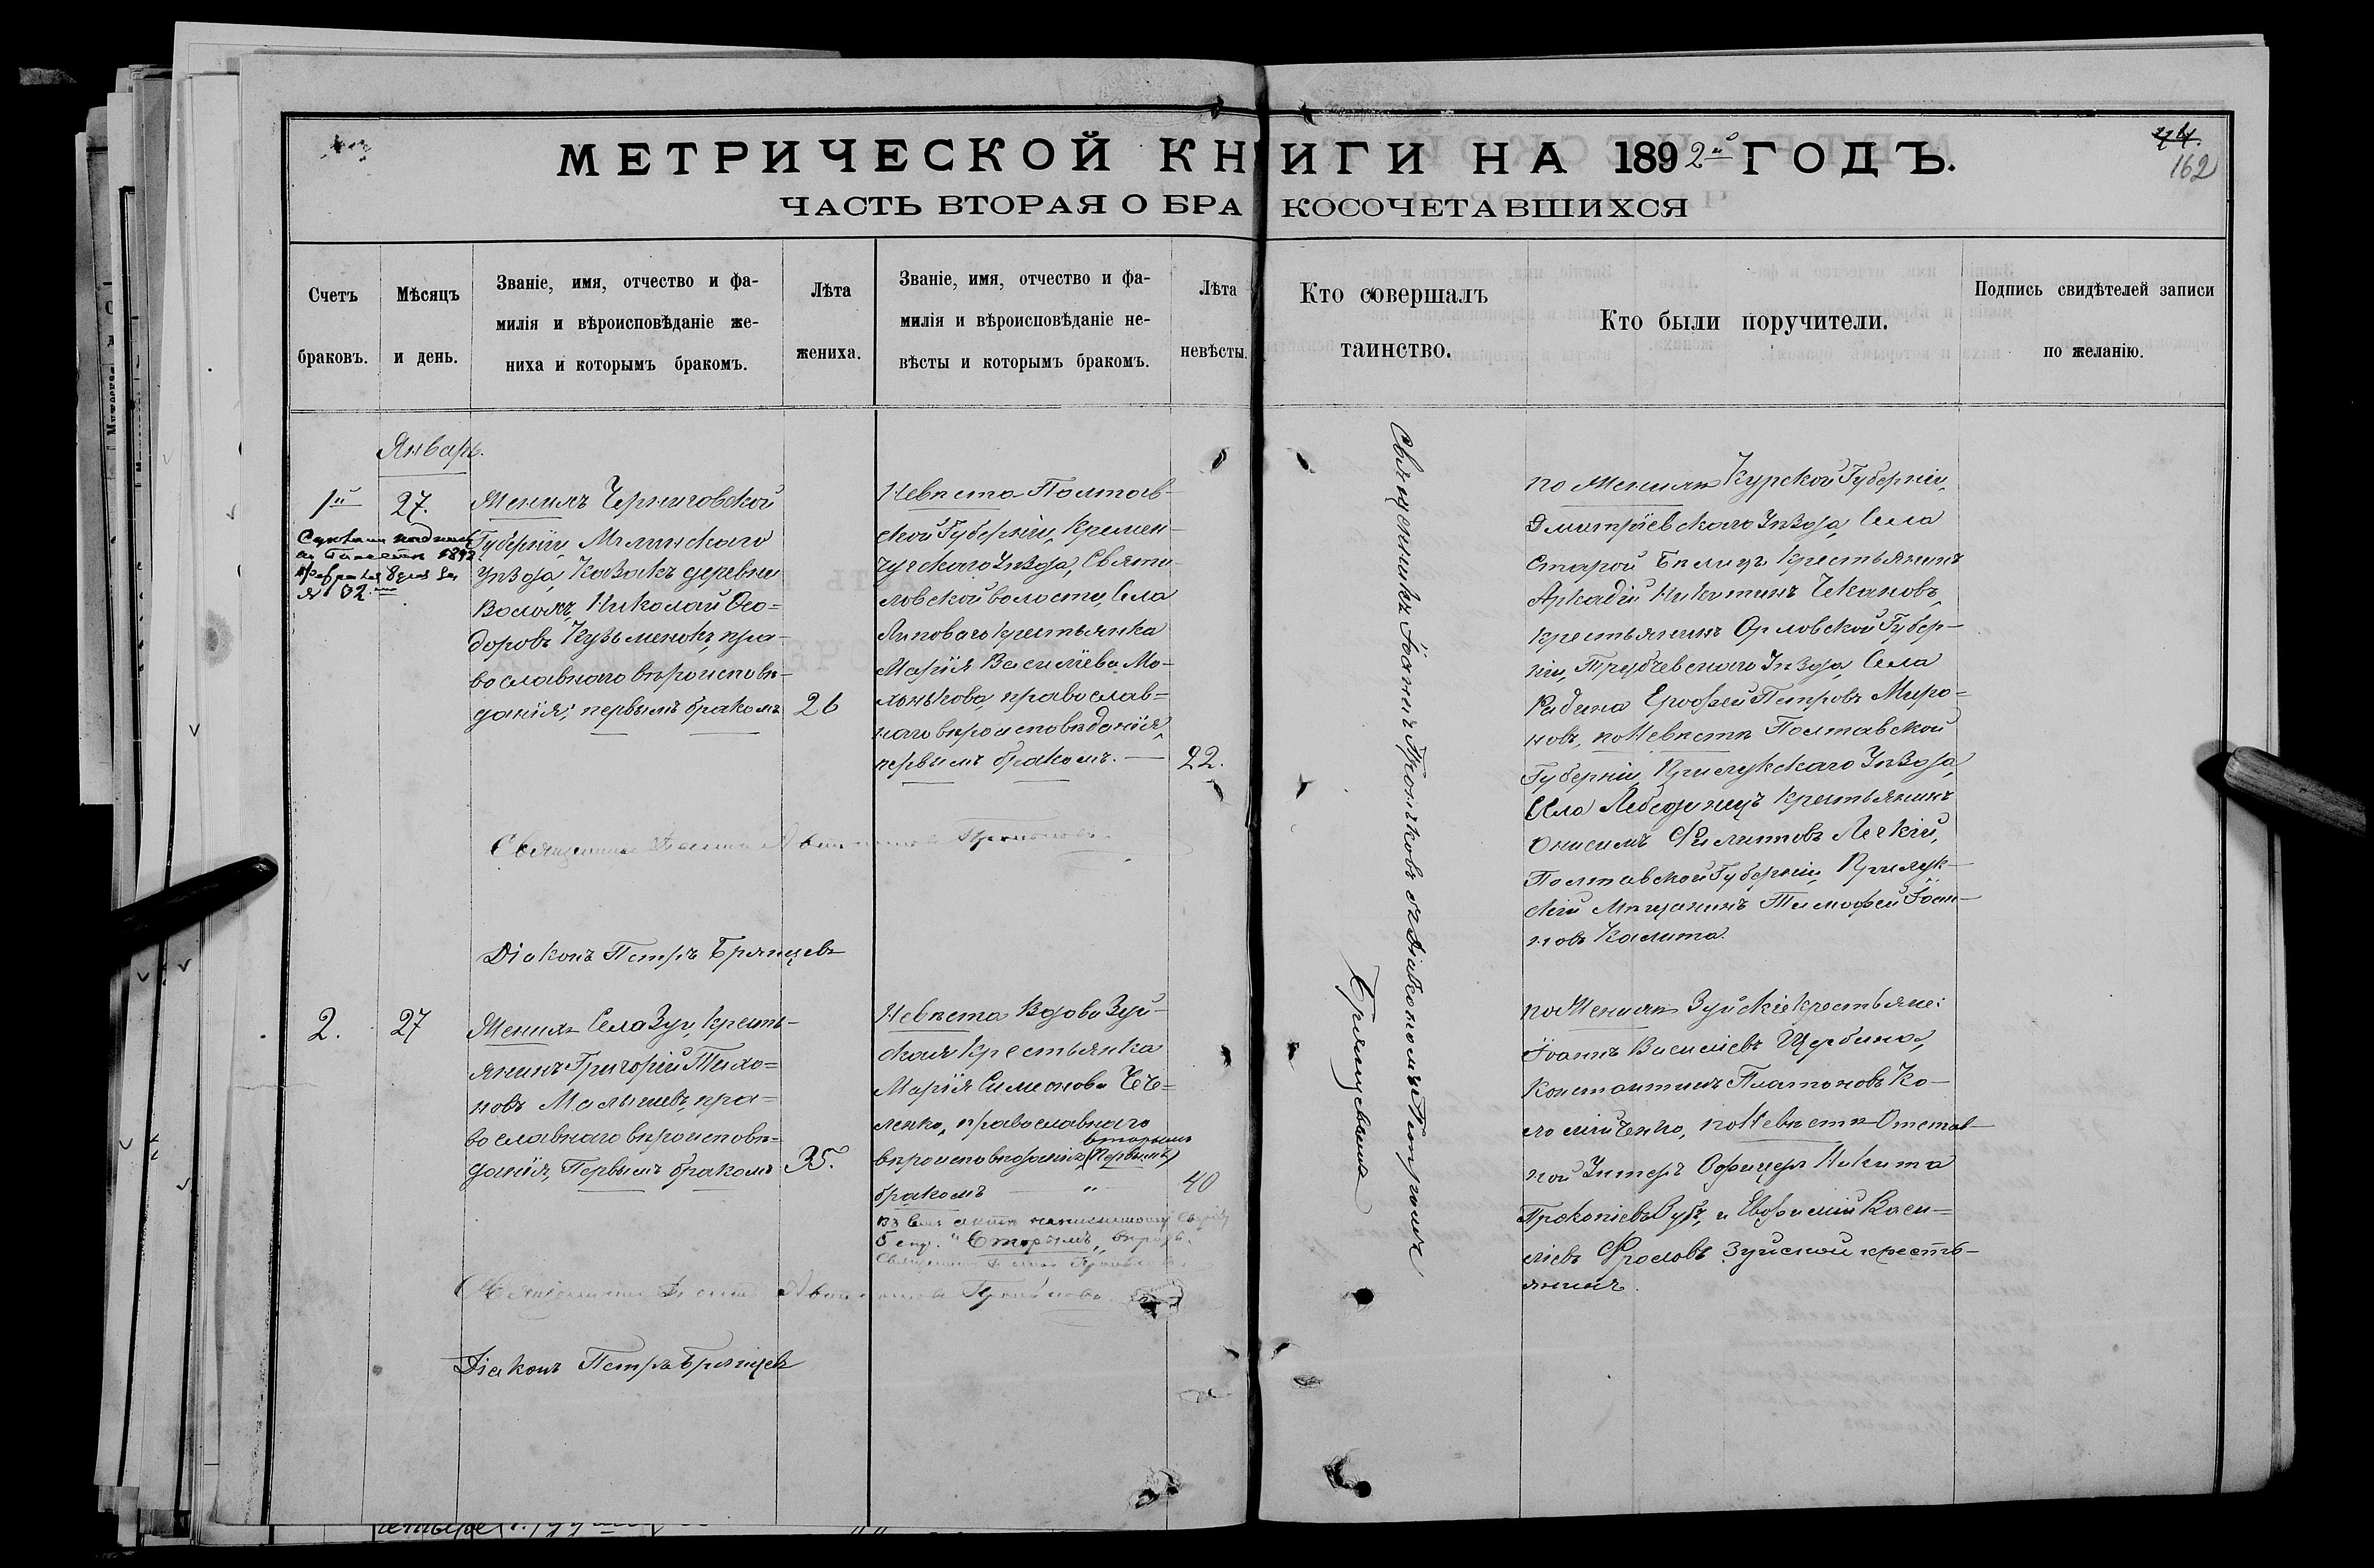 МЕТРИЧЕСКОЙ КНИГИ НА 1892й ГОДЪ.
ЧАСТЬ ВТОРАЯ О БРАКОСОЧЕТАВШИХСЯ
162
Счетъ браковъ.
Мѣсяцъ и день.
Званіе, имя, отчество и фа-
милія и вѣроисповѣданіе же-
ниха и которымъ бракомъ.
Лѣта жениха.
Званіе, имя, отчество и фа-
милія и вѣроисповѣданіе не-
вѣсты и которымъ бракомъ.
Лѣта невѣсты.
Кто совершалъ таинство.
Кто были поручители.
Подпись свидѣтелей записи по желанію.
Январь.
1й
27.
Женихъ Черниговской
Губерніи, Мглинскаго
Уѣзда, Козакъ деревни
Николай Ѳео=
доровъ Кузьменокъ, пра-
вославнаго вѣроисповѣ-
данія, первымъ бракомъ
26
Невѣста Полтав-
ской Губерніи, Кремен-
чугскаго Уѣзда,
ловской волости, Села
крестьянка
Марія Василіева Мо-
православ=
наго вѣроисповѣданія,
первымъ бракомъ. —
22.
Священникъ Іоаннъ Прониковъ съ Діакономъ Петромъ
Брянцевымъ
по Женихѣ Курской Губерніи,
Дмитріевскаго Уѣзда, Села
Старой Бѣлицы крестьянинъ
Аркадій Никитинъ Чекановъ,
крестьянинъ Орловской Губер-
ніи, Трубчевскаго Уѣзда, Села
Радина Ерофей Петровъ Миро=
новъ, по Невѣстѣ Полтавской
Губерніи, Прилукскаго Уѣзда,
Села крестьянинъ
Онисимъ Филиповъ Легкій,
Полтавской Губерніи, Прилук-
скій Мѣщанинъ Тимофей Іоан-
новъ Калита.
Діаконъ Петръ Брянцевъ
2.
27
Женихъ Села Зуи, кресть-
янинъ Григорій Тихо=
новъ Малышевъ, пра=
вославнаго вѣроисповѣ=
данія, Первымъ бракомъ
35.
Невѣста Вдова Зуй-
ская крестьянка
Марія Симеонова
православнаго
вторымъ
вѣроисповѣданія (Первымъ)
бракомъ — "
40
по Женихѣ Зуйскіе крестьяне:
Іоаннъ Василіевъ Щербина,
Константинъ Платоновъ Ко-
ломійченко, по Невѣстѣ Отстав-
ной Унтеръ Офицеръ Никита
Прокопіевъ и Евфимій Васи=
ліевъ Фроловъ Зуйской кресть-
янинъ.
Діаконъ Петръ Брянцевъ